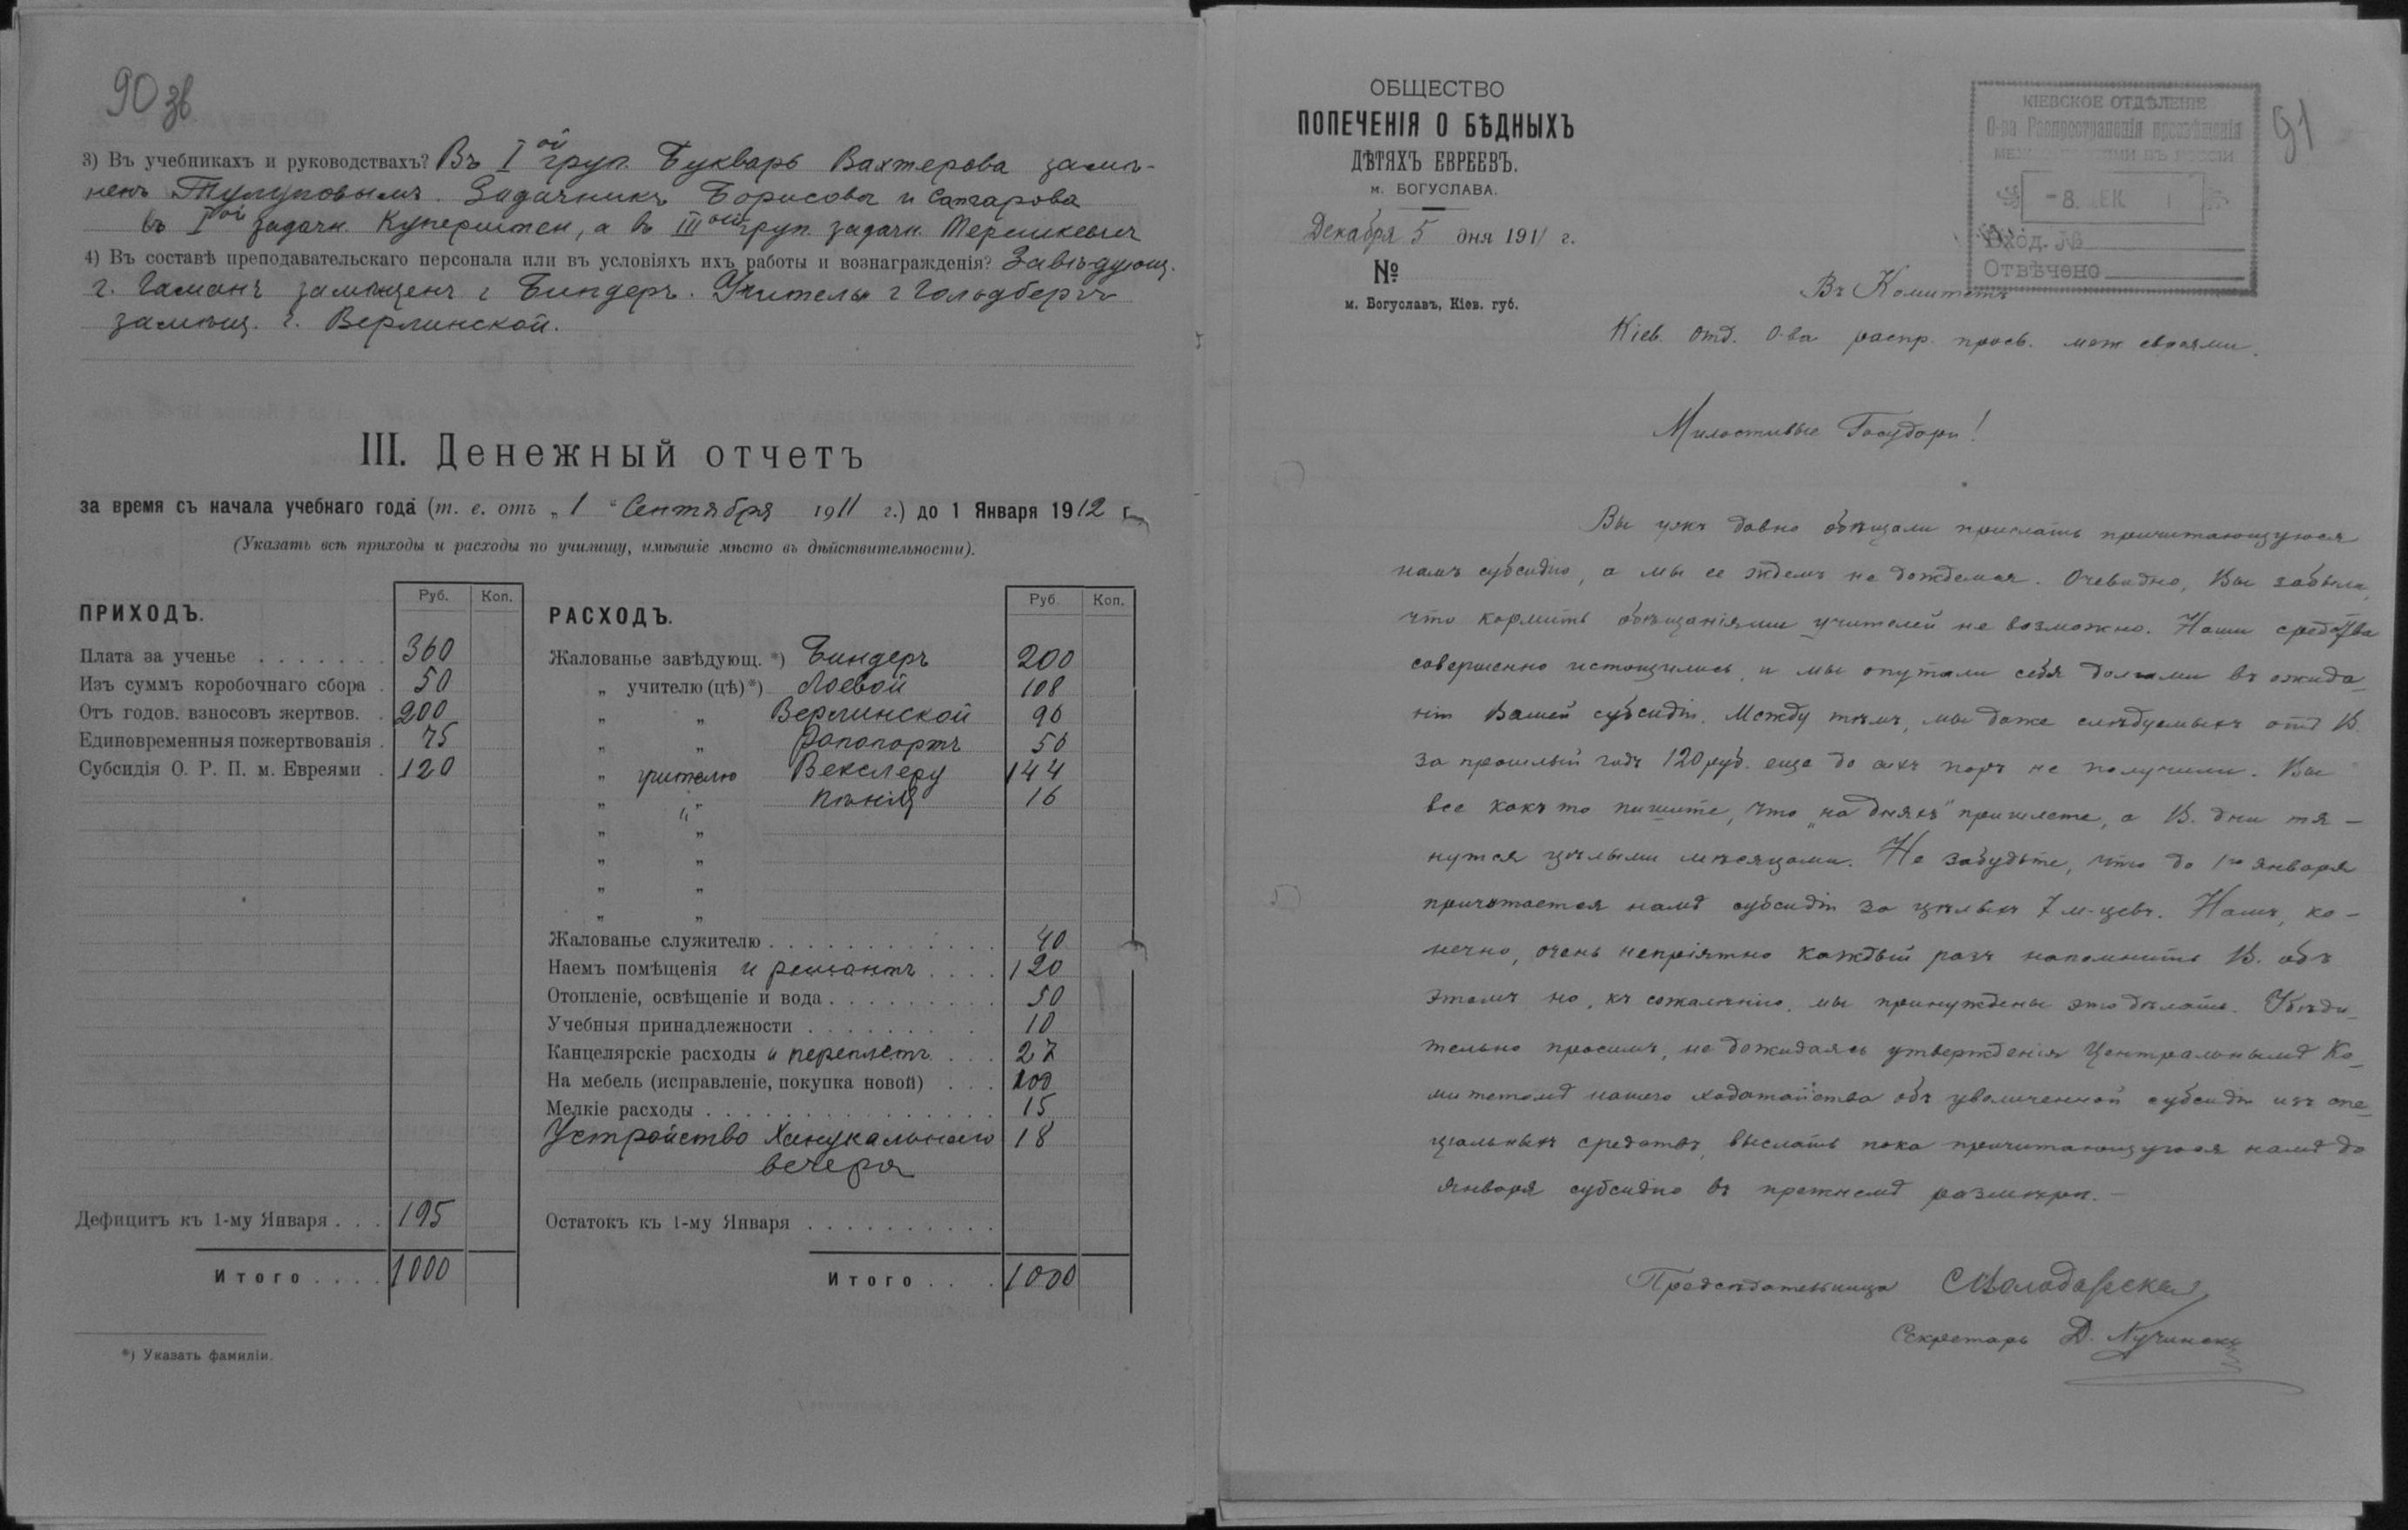 90 зв
3) Въ учебникахъ и руководствахъ? Въ Iой груп. Букварь Вахтерова замѣ-
ненъ Тулуповымъ. Задачникъ Борисова и Сатарова
въ Iой задачн. Куперштен, а въ IIIой груп. задачн. Терешкевич
4) Въ составѣ преподавательскаго персонала или въ условіяхъ ихъ работы и вознагражденія? Завѣдующ.
г. Гаманъ замѣщенъ г Биндеръ. Учитель г Гольдбергъ
замѣщ. г. Верлинской.
III. Денежный отчетъ
за время съ начала учебнаго года (т. е. отъ „1“ Сентября 1911 г.) до 1 Января 1912 г.
(Указать всѣ приходы и расходы по училищу, имѣвшіе мѣсто въ дѣйствительности).
ПРИХОДЪ. Руб. Коп.
Плата за ученье . . . . . . . 360
Изъ суммъ коробочнаго сбора . 50
Отъ годов. взносовъ жертвов. . 200
Единовременныя пожертвованія . 75
Субсидія О. Р. П. м. Евреями . 120
Дефицитъ къ 1-му Января . . . 195
Итого . . . . 1000
РАСХОДЪ. Руб. Коп.
Жалованье завѣдующ. *) Биндеръ 200
„ учителю (цѣ) *) Лоевой 108
„ „ Верлинской 96
„ „ Рапопортъ 56
„ учителю Векслеру 144
„ „ пѣнія 16
„ „
„ „
„ „
„ „
Жалованье служителю . . . . . . . . . . . . 40
Наемъ помѣщенія и ремонтъ . . . . 120
Отопленіе, освѣщеніе и вода . . . . . . . . . 50
Учебныя принадлежности . . . . . . . . 10
Канцелярскіе расходы и переплетъ . . . 27
На мебель (исправленіе, покупка новой) . . . 100
Мелкіе расходы . . . . . . . . . . . . . . . 15
Устройство Ханукальнаго 18
вечера
Остатокъ къ 1-му Января . . . . . . . . . .
Итого . . . . 1000
*) Указать фамиліи.
91
ОБЩЕСТВО
ПОПЕЧЕНІЯ О БѢДНЫХЪ
ДѢТЯХЪ ЕВРЕЕВЪ.
м. БОГУСЛАВА.
Декабря 5 дня 1911 г.
№
м. Богуславъ, Кіев. губ.
КІЕВСКОЕ ОТДѢЛЕНІЕ
О-ва Распространенія просвѣщенія
МЕЖДУ ЕВРЕЯМИ ВЪ РОССІИ
- 8. ДЕК.
Вход. №
Отвѣчено
Въ Комитетъ
Кіев. Отд. О-ва распр. просв. меж евреями.
Милостивые Государи!
Вы ужъ давно обѣщали прислать причитающуюся
намъ субсидію, а мы ее ждемъ не дождемся. Очевидно, Вы забыли,
что кормить обѣщаніями учителей не возможно. Наши средства
совершенно истощились, и мы опутали себя долгами въ ожида-
ніи Вашей субсидіи. Между тѣмъ, мы даже слѣдуемыхъ отъ В.
за прошлый годъ 120 руб. еще до сихъ поръ не получили. Вы
все какъ то пишите, что „на дняхъ“ пришлете, а В. дни тя-
нутся цѣлыми мѣсяцами. Не забудьте, что до 1го января
причитается намъ субсидіи за цѣлыхъ 7 м-цевъ. Намъ, ко-
нечно, очень непріятно каждый разъ напомнить В. объ
этомъ но, къ сожалѣнію, мы принуждены это дѣлать. Убѣди-
тельно просимъ, не дожидаясь утвержденія Центральнымъ Ко-
митетомъ нашего ходатайства объ увеличенной субсидіи изъ спе-
ціальныхъ средствъ, выслать пока причитающуюся намъ до
января субсидію въ прежнемъ размѣрѣ. -
Предсѣдательница С. Володарская
Секретарь Д. Лучинскій